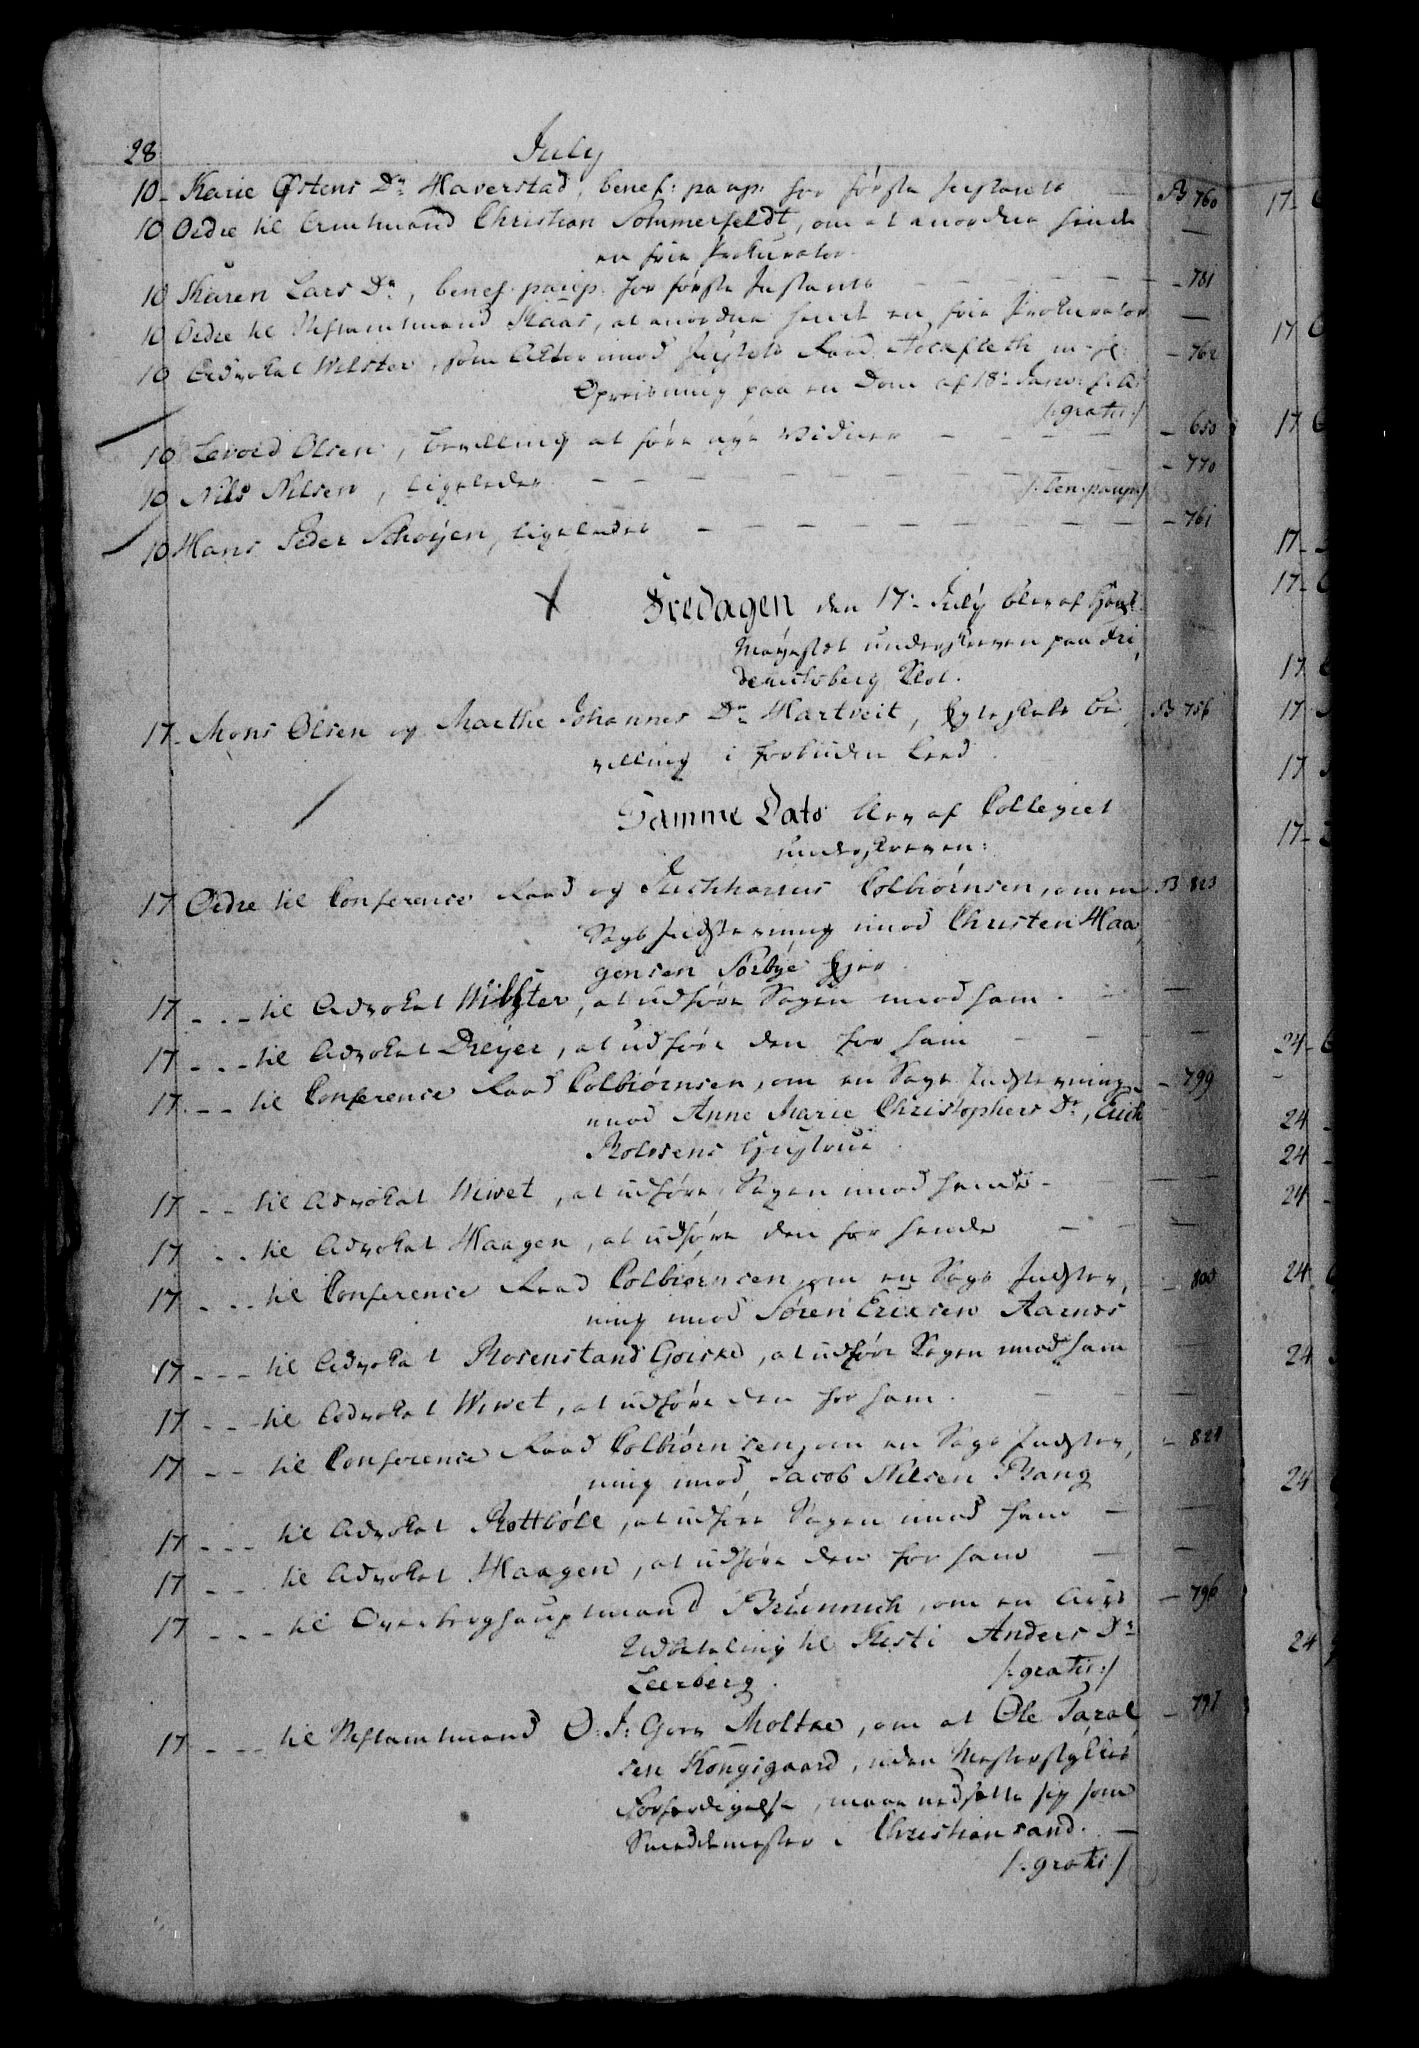 28 July
10 - Karie Østens Dr Haverstad, benef: paup: for første Instants B 760
10 Ordre til Amtmand Christian Sommerfeldt, om at anordne hende —
en frie Prokurator.
10 Karen Lars Dr, benef. paup. for første Instants — 781
10 Ordre til Stiftamtmand Kaas, at anordne hende en frie Prokurator —
10 Advokat Wilster, som Actor imod Justits Raad — 762
Opreisning paa en Dom af 18de Janv: f: A:
/: gratis :/
10 Levord Olsen, bevilling at føre nye Vidner — 650
10 Nils Nilsen, ligeledes — 770
/: ben. paup :/
10 Hans Peder Schøyen, ligeledes — 761
Fredagen den 17de July blev af Hans
Mayestet underskreven paa Fri,
derichsberg Slot.
17 - Mons Olsen og Marthe Johannes Dr Hartveit, Egteskabs Be, B 756
villing i forbuden Leed.
Samme Dato blev af Collegiet
underskreven:
17 Ordre til Conference Raad og Justitiarius Colbiørnsen, om en B 823
Sags Indstevning imod Christen Haa,
gensen Sørbye
17 - - - til Advokat Wilster, at udføre Sagen imod ham. —
17 - - - til Advokat Dreyer, at udføre den for ham —
17 - - - til Conference Raad Colbiørnsen, om en Sags Indstevning — 799
imod Anne Marie Christophers Dr, Erich
Rolvsens Hustrue.
17 - - til Advokat Wivet, at udføre Sagen imod hende —
17 - - til Advokat Haagen, at udføre den for hende —
17 - - - til Conference Raad Colbiørnsen, om en Sags Indstev, — 800
ning imod Søren Ericsen Aarnes
17 - - - til Advokat Rosenstand Goiske, at udføre Sagen imod ham —
17 - - - til Advokat Wivet, at udføre den for ham. —
17 - - til Conference Raad Colbiørnsen, om en Sags Indstev, — 821
ning imod Jacob Nilsen Bang
17 - - - til Advokat Rottbøll, at udføre Sagen imod ham —
17 - - til Advokat Haagen, at udføre den for ham —
17 - - - til Overberghauptmand Brünnich, om en Arvs — 796
Udbetaling til Kisti Anders Dr
Leerberg. /: gratis :/
17 - - - til Stiftamtmand O: J: Gers Moltke, om at Ole Taral, — 797
sen Kongsgaard, uden Mesterstykkes
Forferdigelse, maae nedsætte sig som
Smeddemester i Christiansand. —
/: gratis :/
17 -
17
17
17 -
17 -
17
17
17
17 -
24 -
24
24
24
24
24
24
24